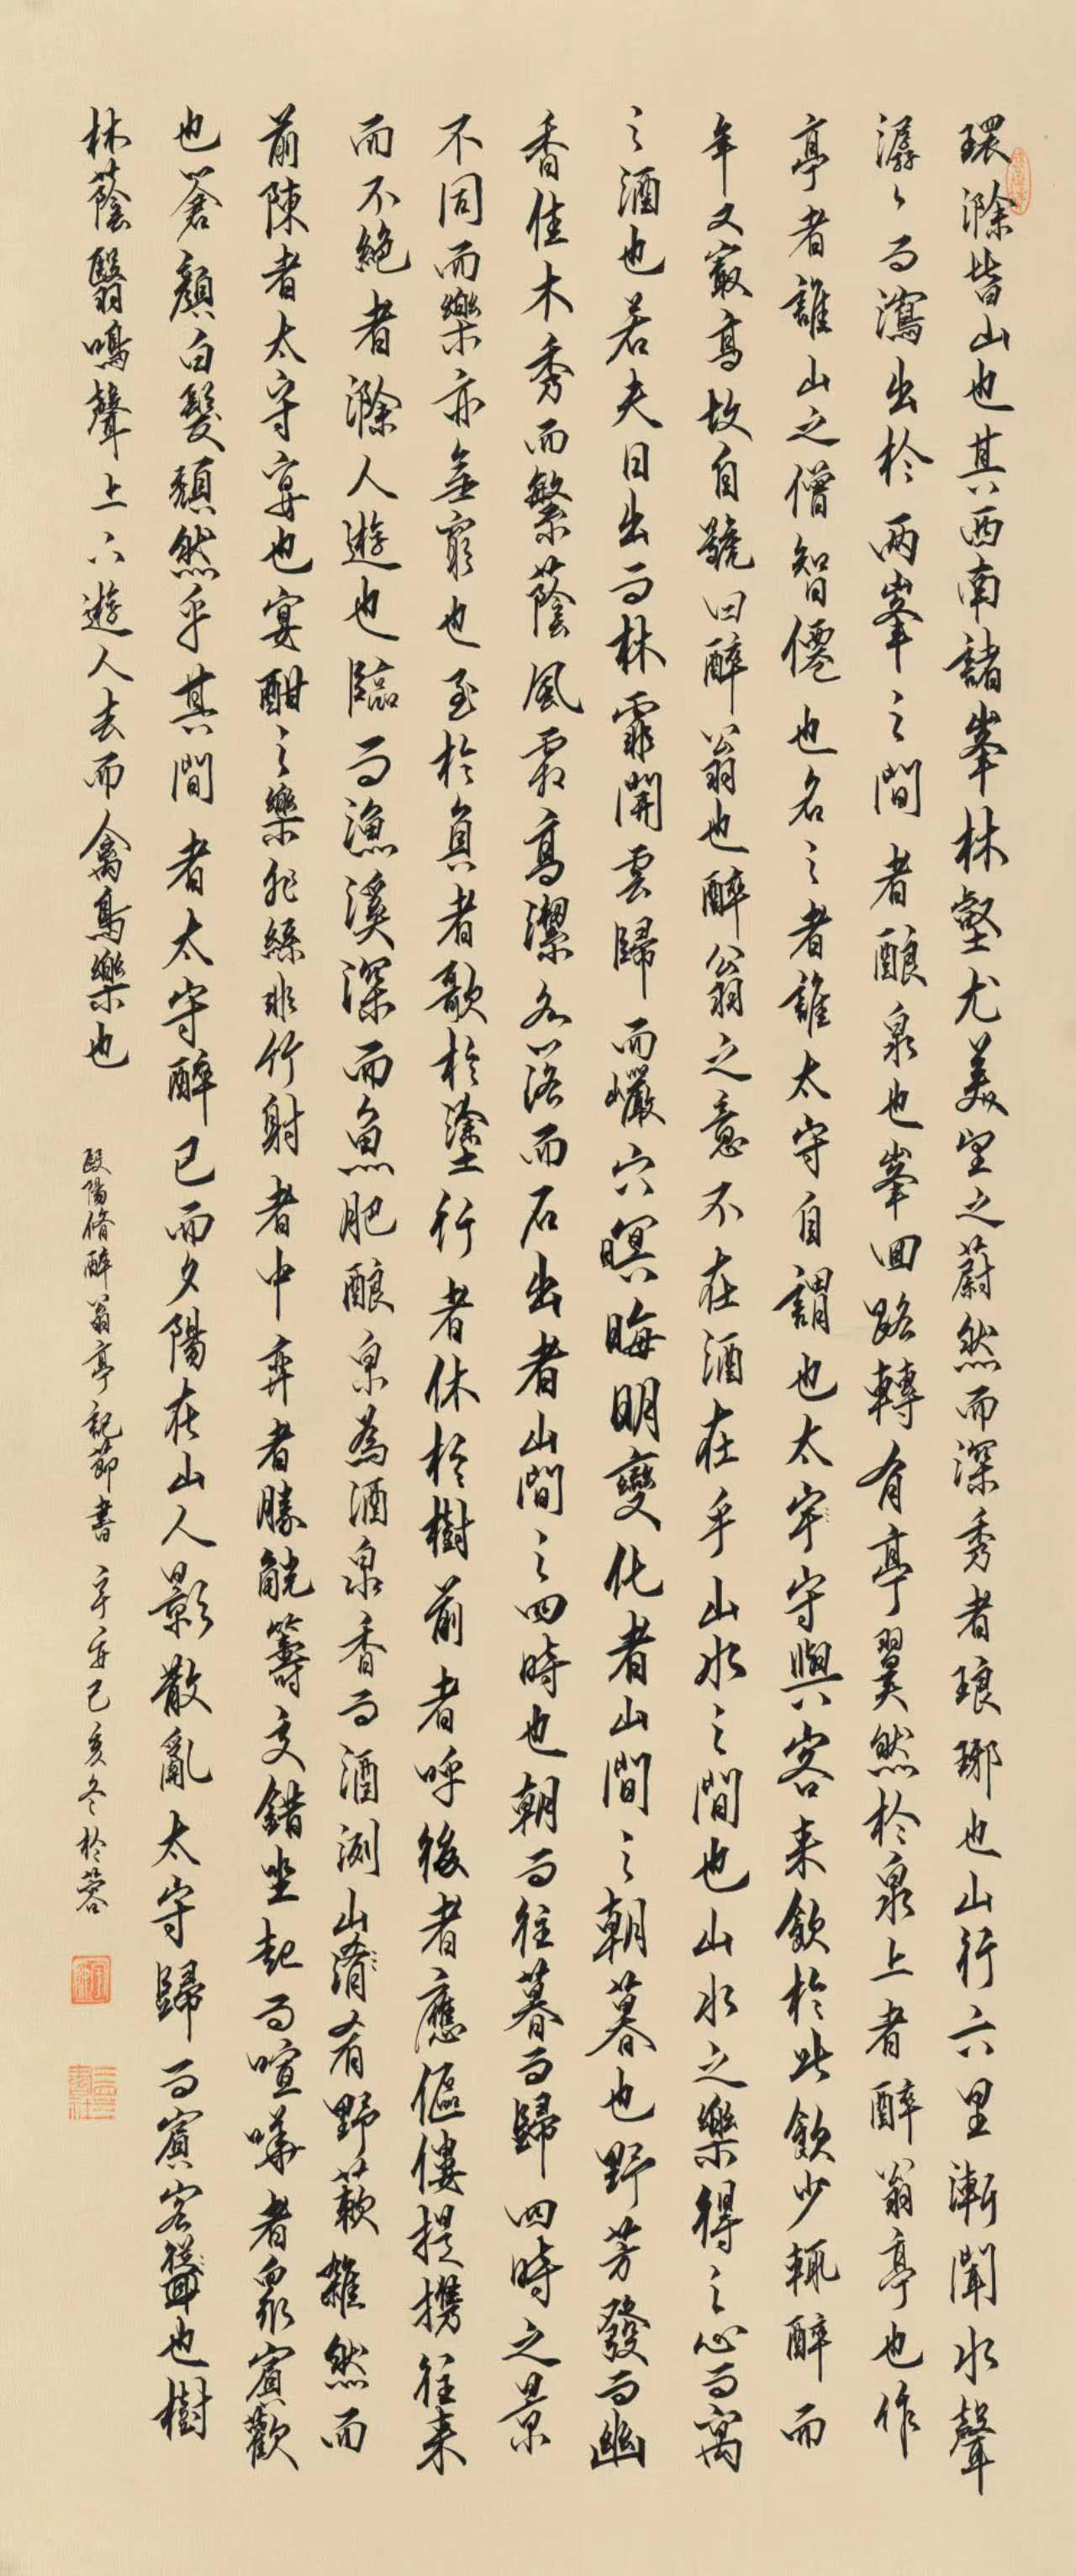 環滁皆山也其西南諸峯林壑尤美望之蔚然而深秀者琅琊也山行六里漸聞水聲
潺々而瀉出於兩峯之間者釀泉也峯回路轉有亭翼然於泉上者醉翁亭也作
亭者誰山之僧智僊也名之者誰太守自謂也太守與客来飲於此飲少輒醉而
年又最高故自號曰醉翁也醉翁之意不在酒在乎山水之間也山水之樂得之心而寓
之酒也若夫日出而林霏開雲歸而巖穴暝晦明變化者山間之朝暮也野芳發而幽
香佳木秀而繁蔭風霜高潔水落而石出者山間之四時也朝而往暮而歸四時之景
不同而樂亦無窮也至於負者歌於塗行者休於樹前者呼後者應傴僂提攜往来
而不絕者滁人遊也臨而漁溪深而魚肥釀泉為酒泉香而酒洌山肴野蔌雜然而
前陳者太守宴也宴酣之樂非絲非竹射者中弈者勝觥籌交錯坐起而喧嘩者眾賓歡
也蒼顏白髮頹然乎其間者太守醉已而夕陽在山人影散亂太守歸而賓客從也樹
林蔭翳鳴聲上下遊人去而禽鳥樂也
歐陽脩醉翁亭記節書 己亥冬於蓉